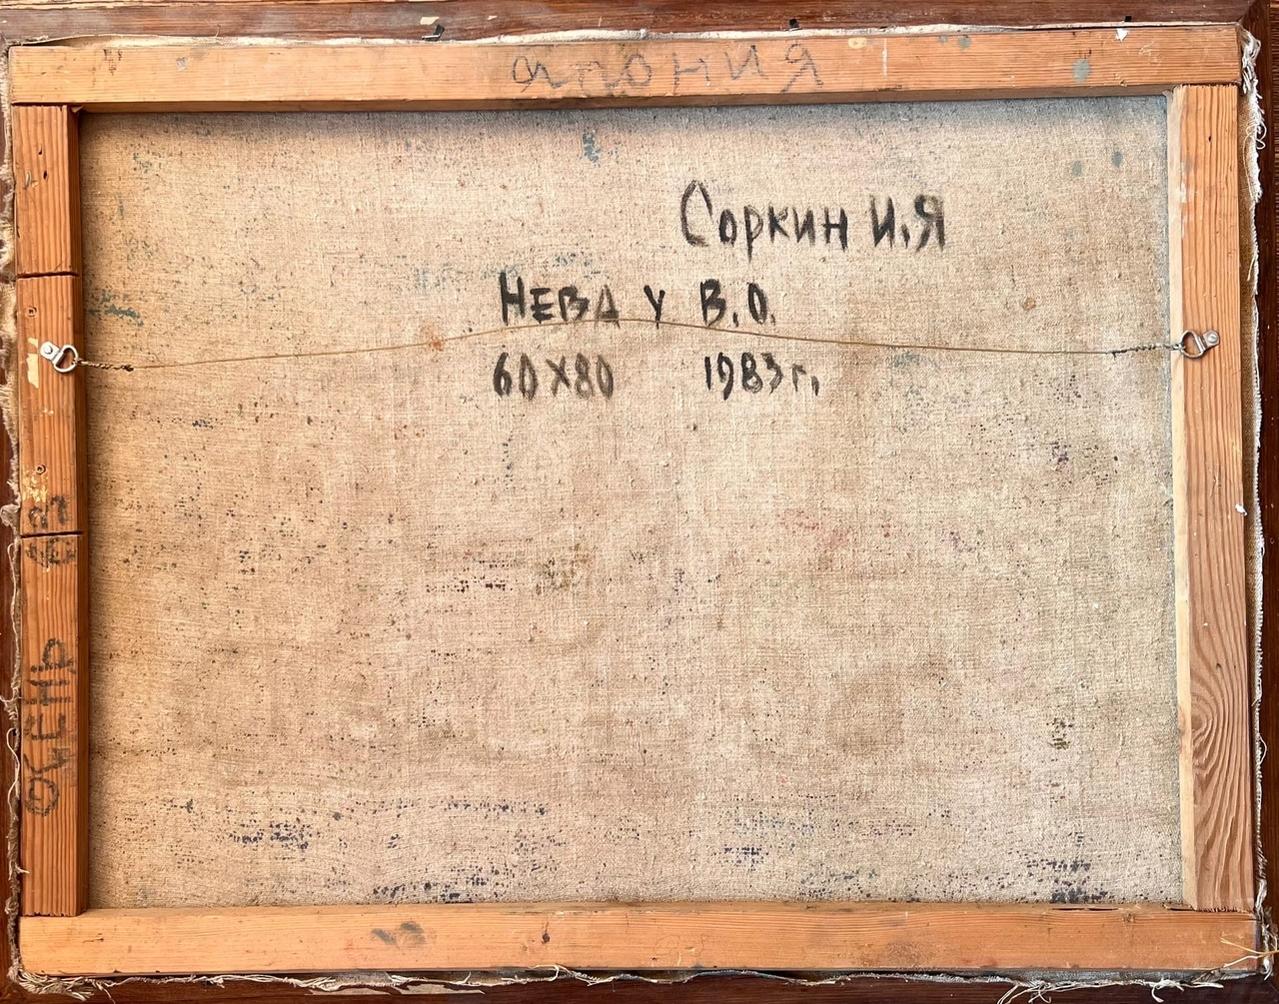 япония
Соркин И.Я
Нева у В.О.
60х80 1983 г.
осень 83